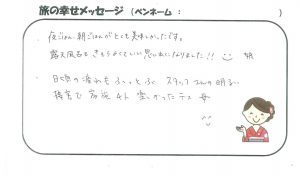 旅の幸せメッセージ (ペンネーム : )
・夜ごはん、朝ごはんがとても美味しかったです。
露天風呂もきもちよくていい思い出になりました!! 娘
・日頃の疲れもふっとぶ スタッフさんの明るい
接客で 家族4人 楽しかったデス 母